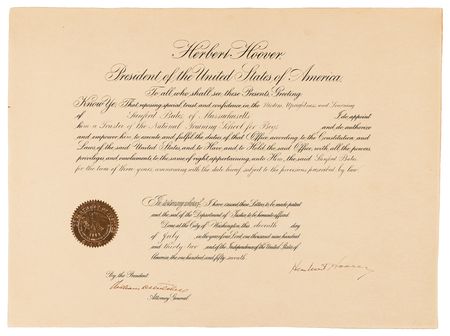 Herbert Hoover,
President of the United States of America,
To all who shall see these Presents, Greeting:
Know Ye; That reposing special trust and confidence in the Wisdom, Uprightness, and Learning
of Sanford Bates of Massachusetts I do appoint
him a Trustee of the National Training School for Boys and do authorize
and empower him to execute and fulfil the duties of that Office according to the Constitution and
Laws of the said United States, and to Have and to Hold the said Office, with all the powers
privileges and emoluments to the same of right appertaining, unto Him, the said Sanford Bates
for the term of three years, commencing with the date hereof, subject to the provisions prescribed by law.
In testimony whereof, I have caused these Letters to be made patent
and the seal of the Department of Justice to be hereunto affixed.
Done at the City of Washington this eleventh day
of July in the year of our Lord one thousand nine hundred
and thirty two and of the Independence of the United States of
America the one hundred and fifty seventh.
Herbert Hoover
By the President:
Attorney General.